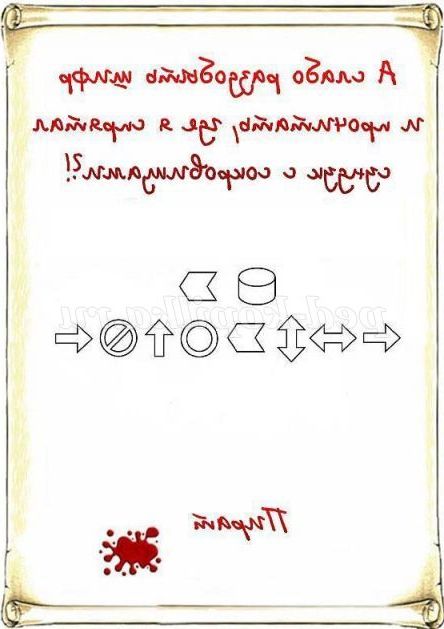 А слабо раздобыть шифр
и прочитать, где я спрятал
сундук с сокровищами?!
ped-kopilka.ru
Пират